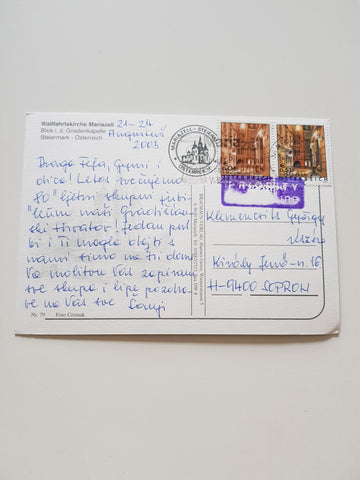 Wallfahrtskirche Mariazell
Blick i. d. Gnadenkapelle
Steiermark - Österreich
21-24
Augustuš
2003
MARIAZELL - STEIERMARK
ÖSTERREICH
Drage Fefa, Gyuri i
dica! Letos svečujemo
80 ljetni skupni
naši Gradišćan-
ski Hrvatov! Jedan put
bi i Ti mogla dojti s
nami simo na tri dane.
Va molitvu Vas zapisam
sve skupa i lipo pozdra-
ve na Vas sve
Klemencsits György
részére
Király Jenő u. 16
H-9400 SOPRON
Nr. 79
Foto Cermak